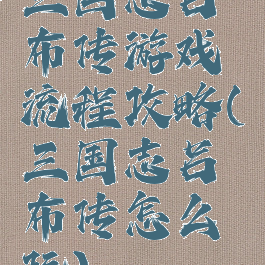 三国志吕
布传游戏
流程攻略(
三国志吕
布传怎么